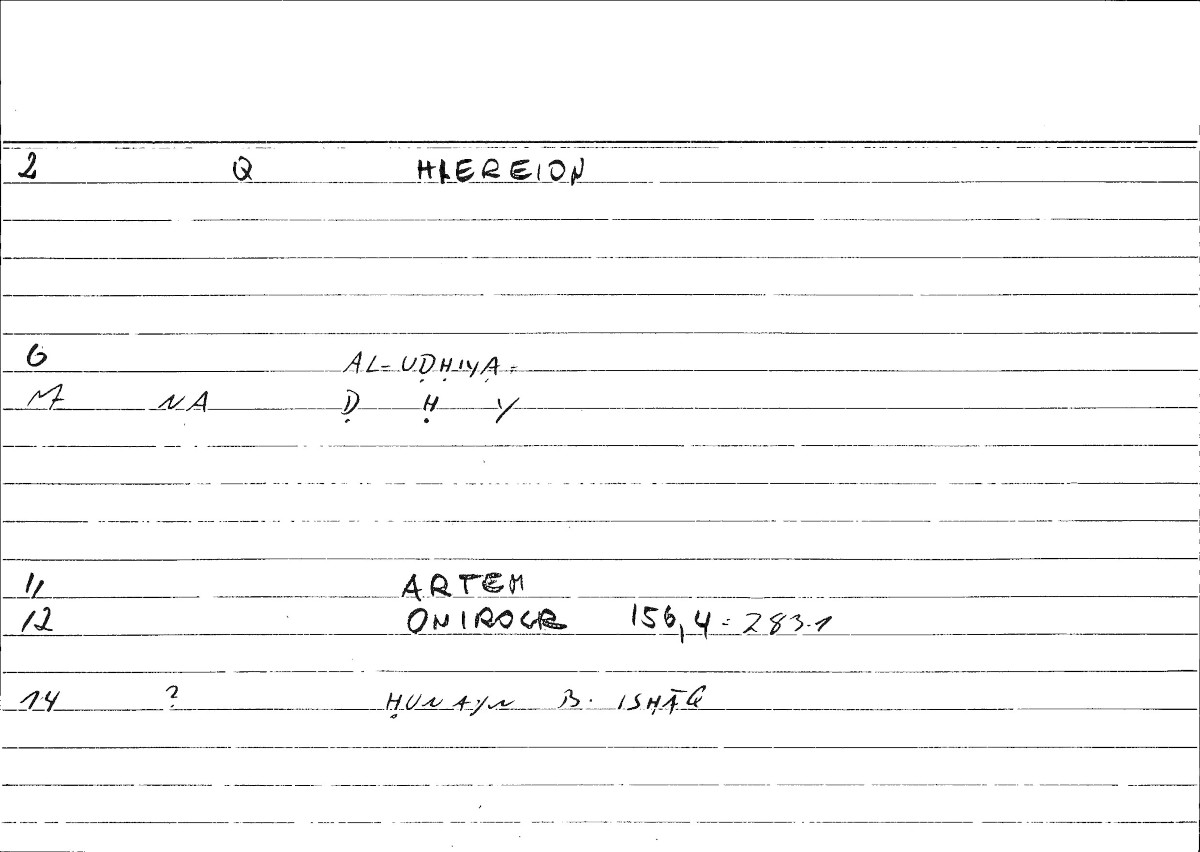 2 Q HIEREION
6 AL-UḌḤIYA-
M NA Ḍ Ḥ Y
11 ARTEM
12 ONIROCR 156,4 = 283.1
14 ? ḤUNAYN B. ISḤĀQ